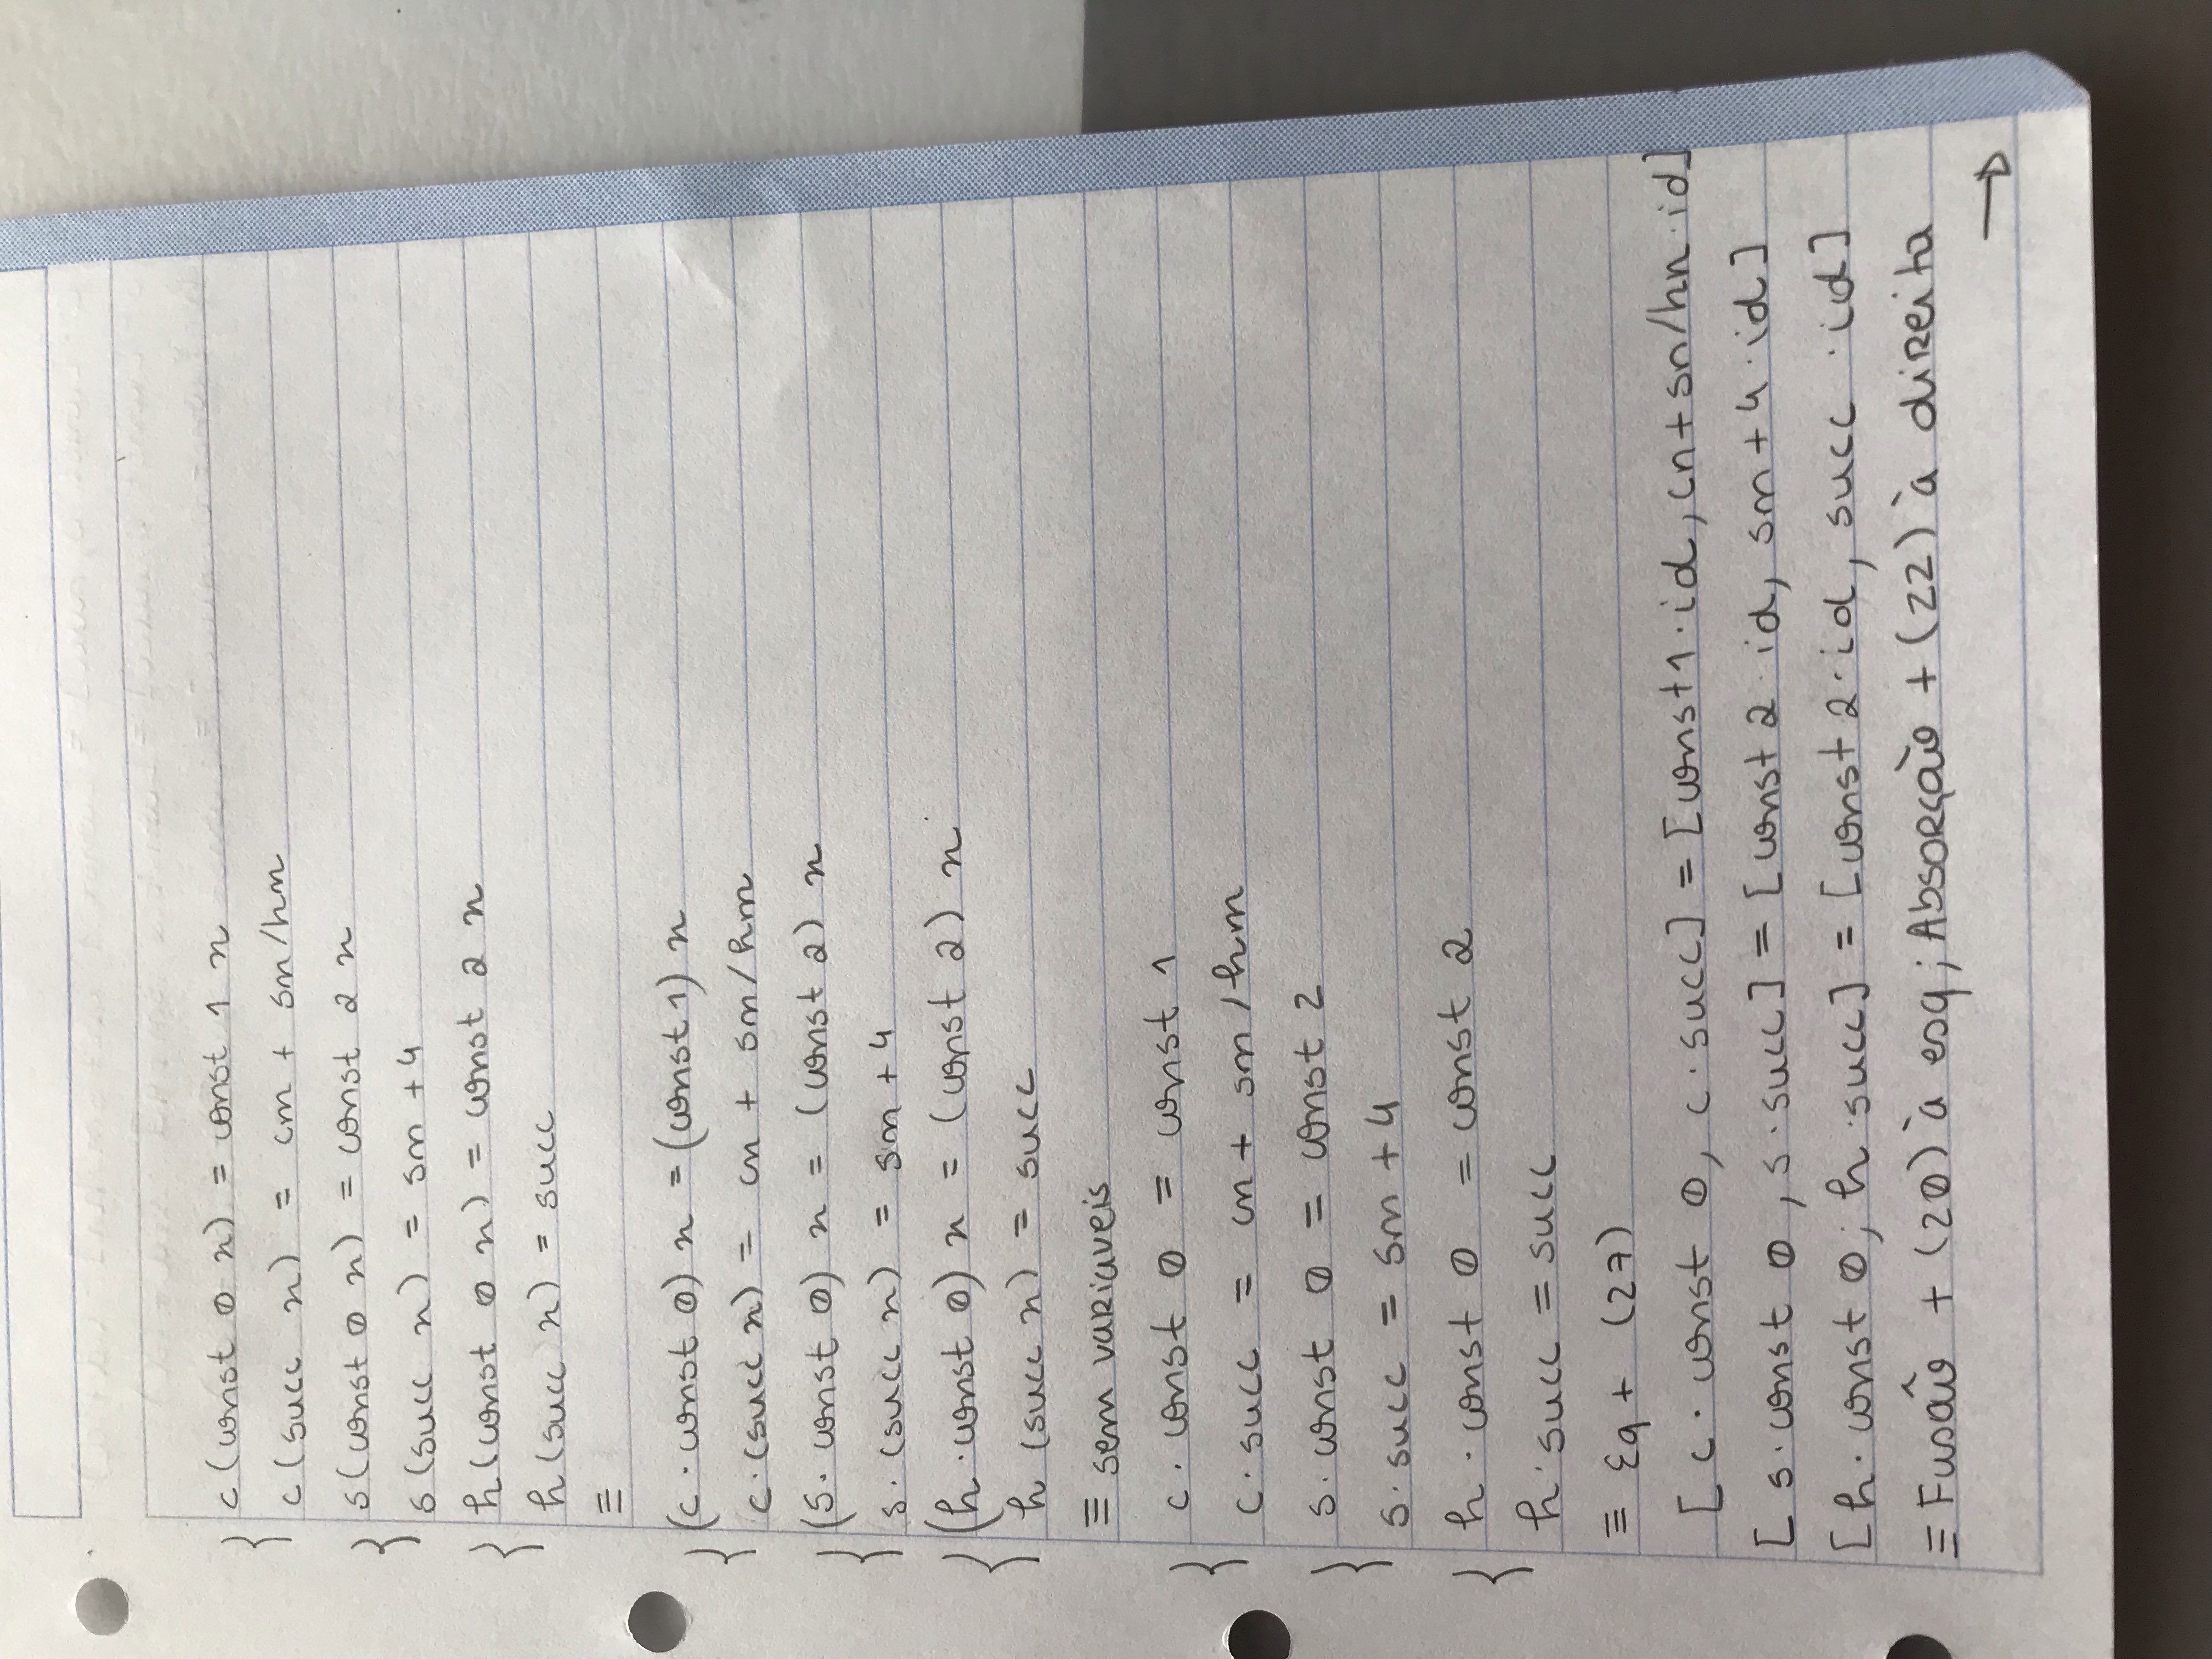 { c (const 0 n) = const 1 n
c (succ n) = cn + sn/hn
{ s (const 0 n) = const 2 n
s (succ n) = sn + 4
{ h (const 0 n) = const 2 n
h (succ n) = succ
≡
{ (c · const 0) n = (const 1) n
c · (succ n) = cn + sn/hn
{ (s · const 0) n = (const 2) n
s · (succ n) = sn + 4
{ (h · const 0) n = (const 2) n
h (succ n) = succ
≡ sem variaveis
{ c · const 0 = const 1
c · succ = cn + sn/hn
{ s · const 0 = const 2
s · succ = sn + 4
{ h · const 0 = const 2
h · succ = succ
≡ Eq + (27)
[c · const 0, c · succ] = [const 1 · id, cn + sn/hn · id]
[s · const 0, s · succ] = [const 2 · id, sn + 4 · id]
[h · const 0, h · succ] = [const 2 · id, succ · id]
≡ Fusão + (20) à esq; Absorção + (22) à direita
→